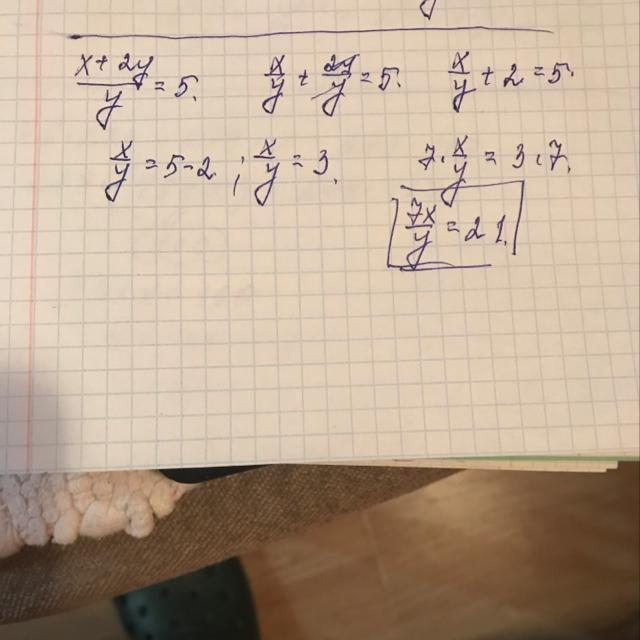 x+2y/y = 5. x/y + 2y/y = 5. x/y + 2 = 5.
x/y = 5-2 ; x/y = 3. 7·x/y = 3·7.
7x/y = 21.